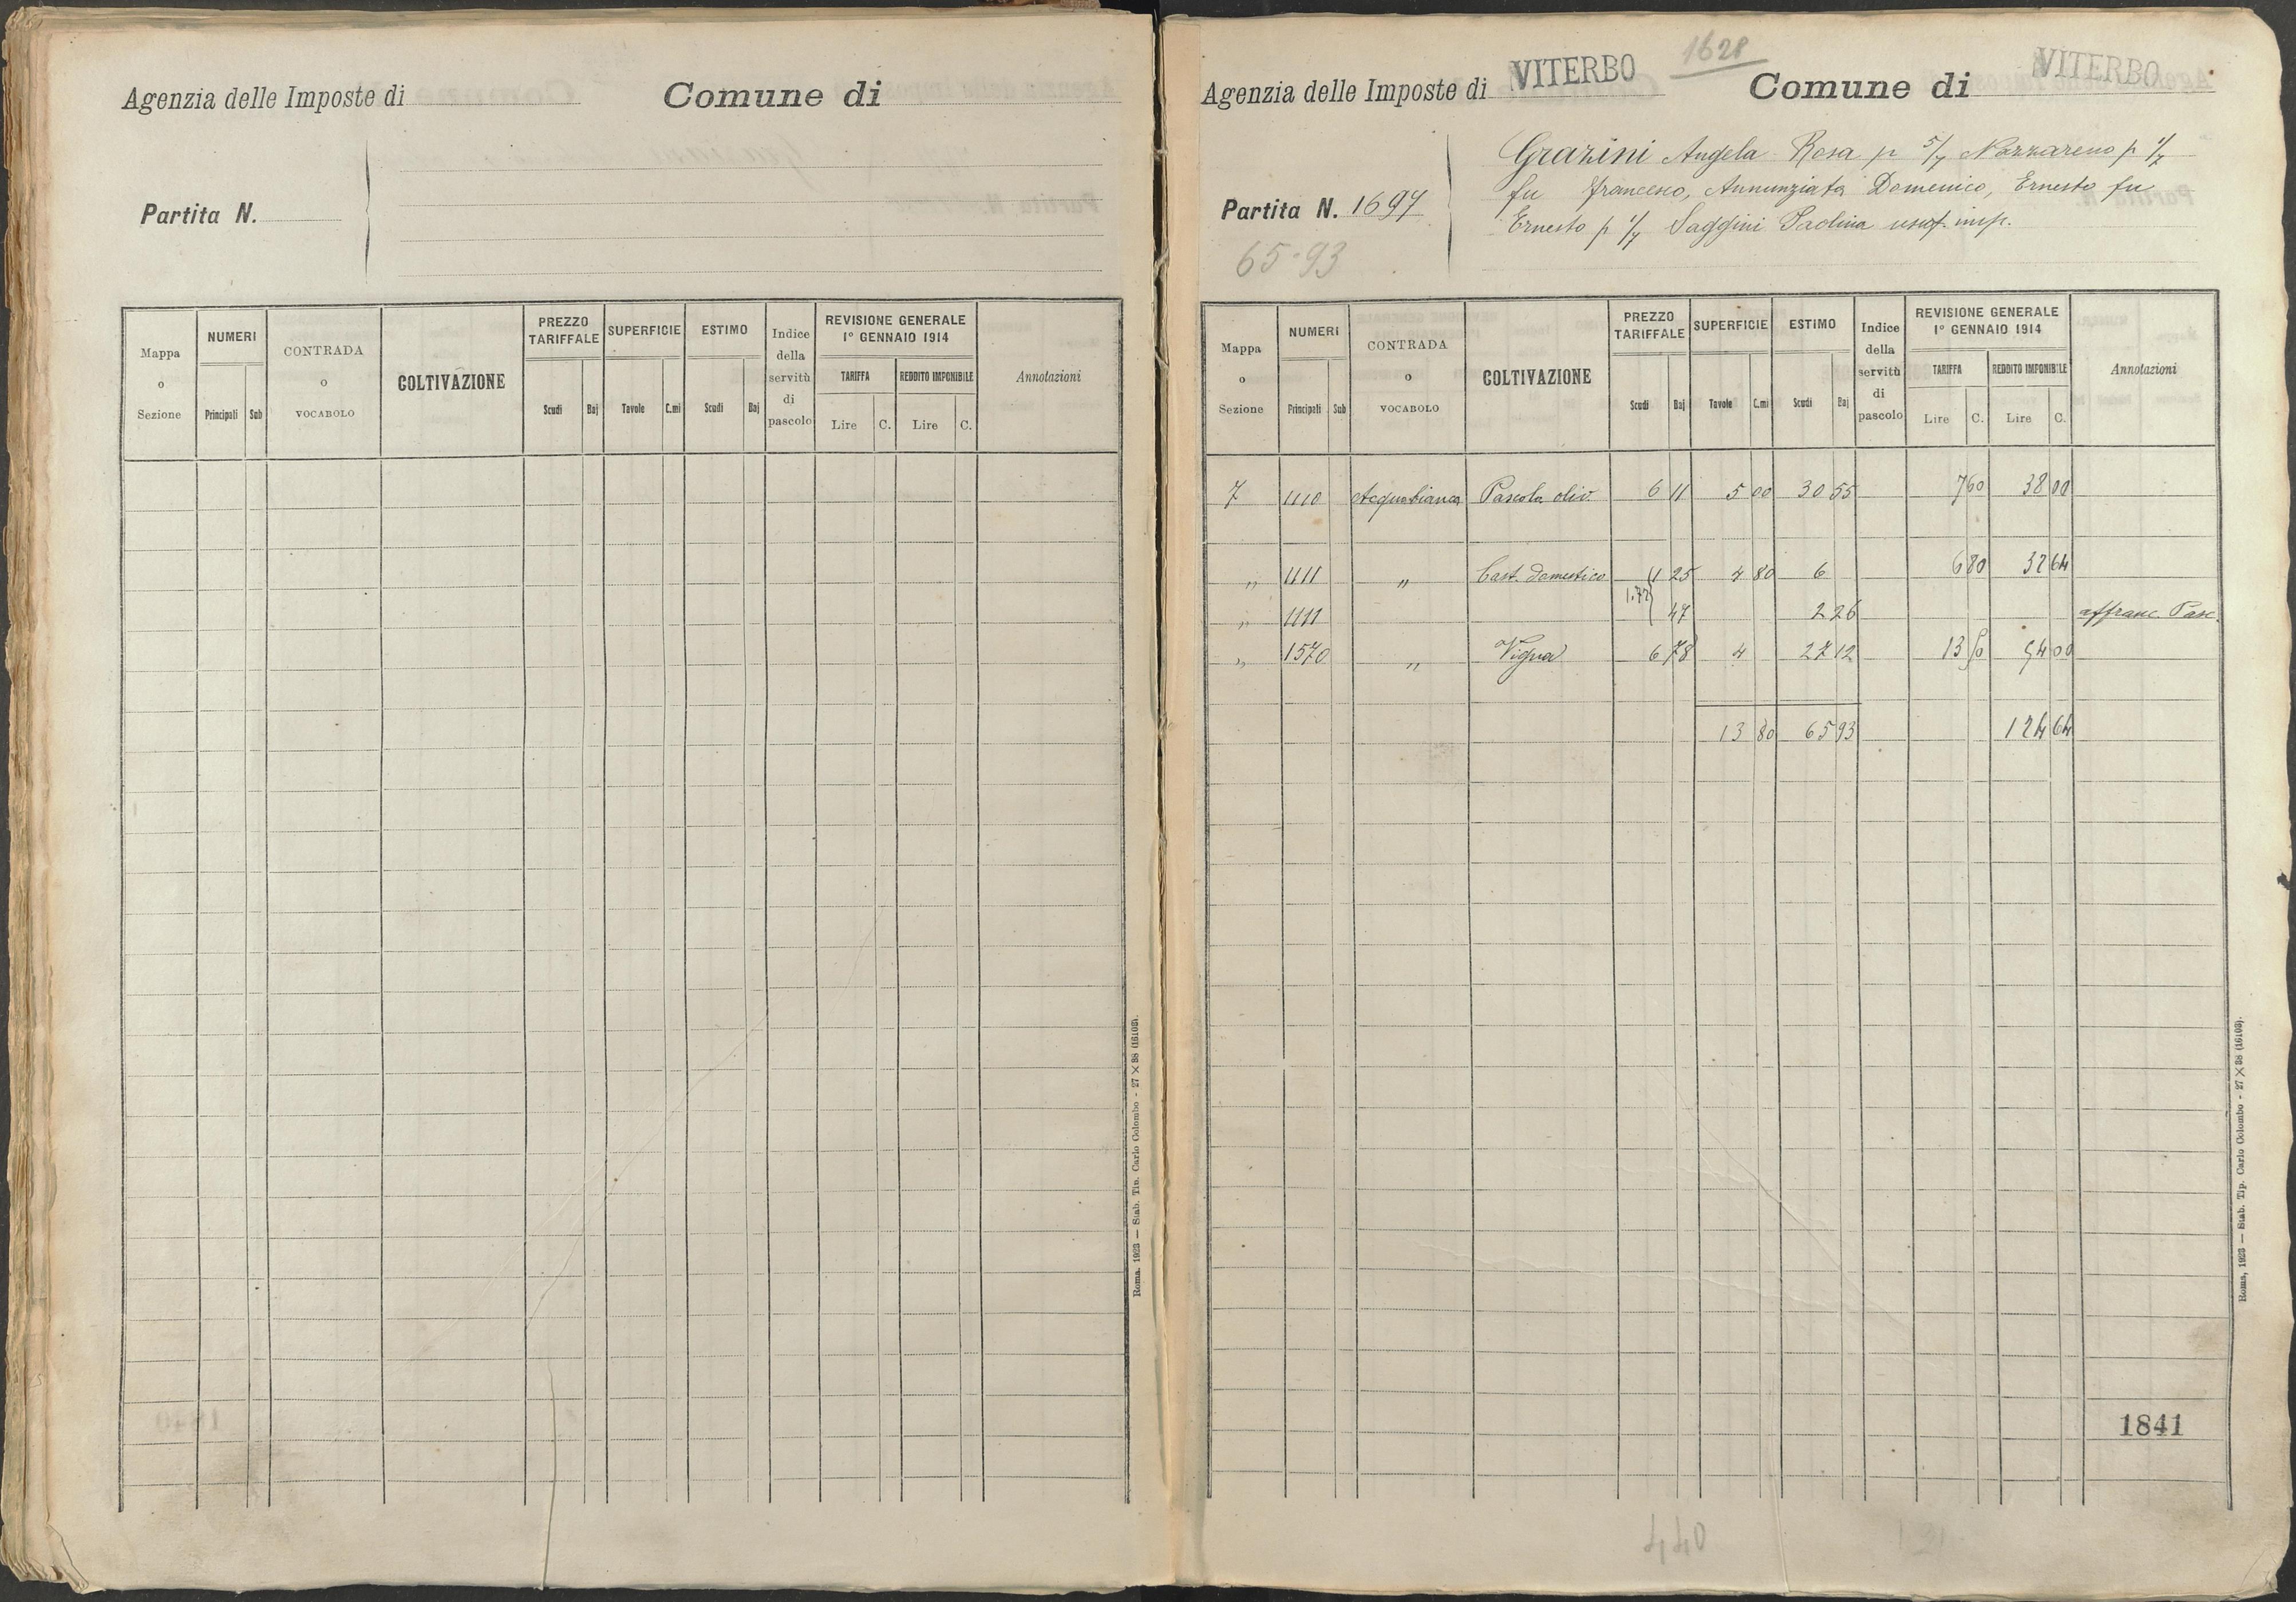 Agenzia delle Imposte di Comune di
Partita N.
Mappa o Sezione NUMERI Principali Sub CONTRADA o VOCABOLO COLTIVAZIONE PREZZO TARIFFALE Scudi Baj SUPERFICIE Tavole C.mi ESTIMO Scudi Baj Indice della servitù di pascolo REVISIONE GENERALE 1° GENNAIO 1914 TARIFFA Lire C. REDDITO IMPONIBILE Lire C. Annotazioni
Roma. 1923 — Stab. Tip. Carlo Colombo - 27 × 38 (16103).
1628
Agenzia delle Imposte di VITERBO Comune di VITERBO
Grazini Angela Rosa p 5/7 Nazzareno p 1/7
fu Francesco, Annunziata Domenico, Ernesto fu
Partita N. 1697
Ernesto p 1/7 Saggini Paolina usuf. imp.
65-93
Mappa o Sezione NUMERI Principali Sub CONTRADA o VOCABOLO COLTIVAZIONE PREZZO TARIFFALE Scudi Baj SUPERFICIE Tavole C.mi ESTIMO Scudi Baj Indice della servitù di pascolo REVISIONE GENERALE 1° GENNAIO 1914 TARIFFA Lire C. REDDITO IMPONIBILE Lire C. Annotazioni
7 1110 Acquabianca Pascolo oliv. 6 11 5 00 30 55 7 60 38 00
" 1111 " Cast. domestico 1 25 4 80 6 6 80 32 64
1.72
" 1111 47 2 26 affranc. Pasc.
" 1570 " Vigna 6 78 4 27 12 13 50 54 00
13 80 65 93 124 64
1841
Roma, 1923 — Stab. Tip. Carlo Colombo - 27 × 38 (16103).
440